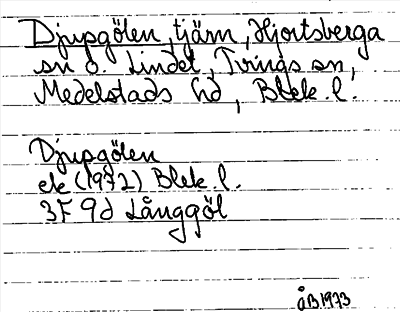 Djupgölen, tjärn, Hjortsberga
sn o. Lindel, Tvings sn,
Medelstads hd, Blek. l.
Djupgölen
ek (1972) Blek l.
3F 9d Långgöl
ÅB 1973